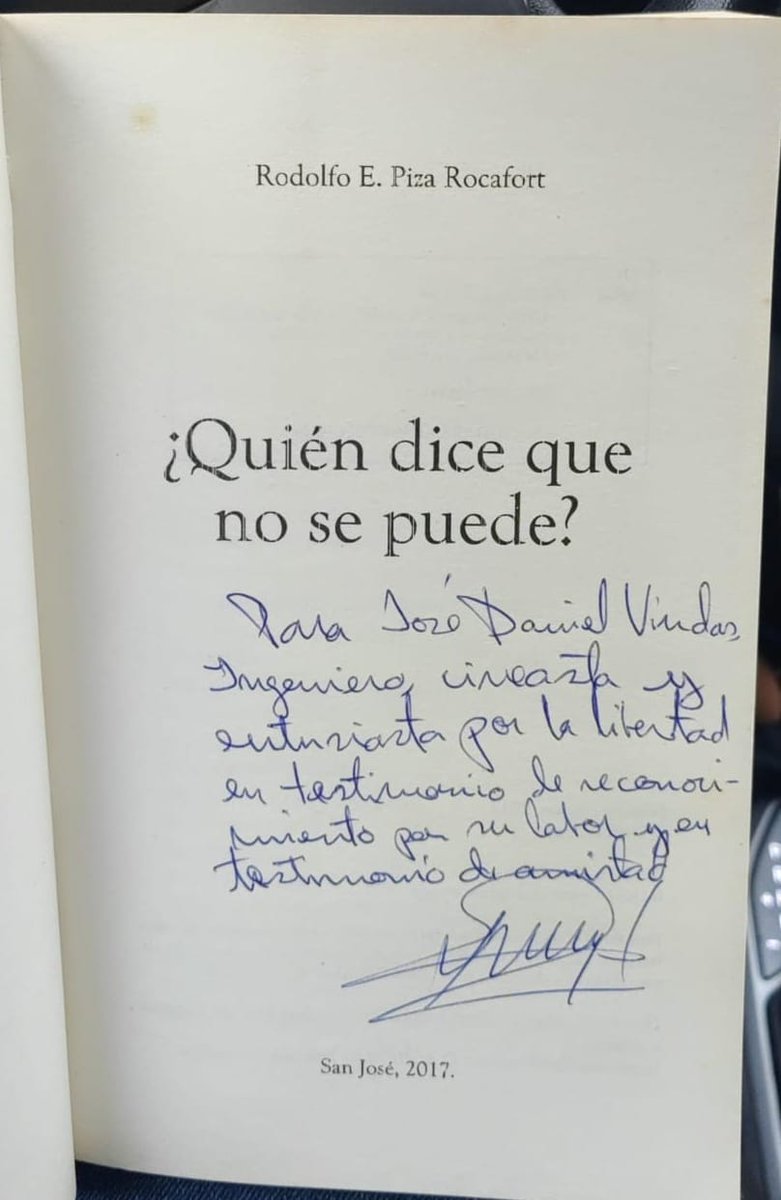 Rodolfo E. Piza Rocafort
¿Quién dice que
no se puede?
Para José Daniel Vindas,
Ingeniero, cineasta y
entusiasta por la libertad
en testimonio de reconoci-
miento por su labor y en
testimonio de amistad
San José, 2017.